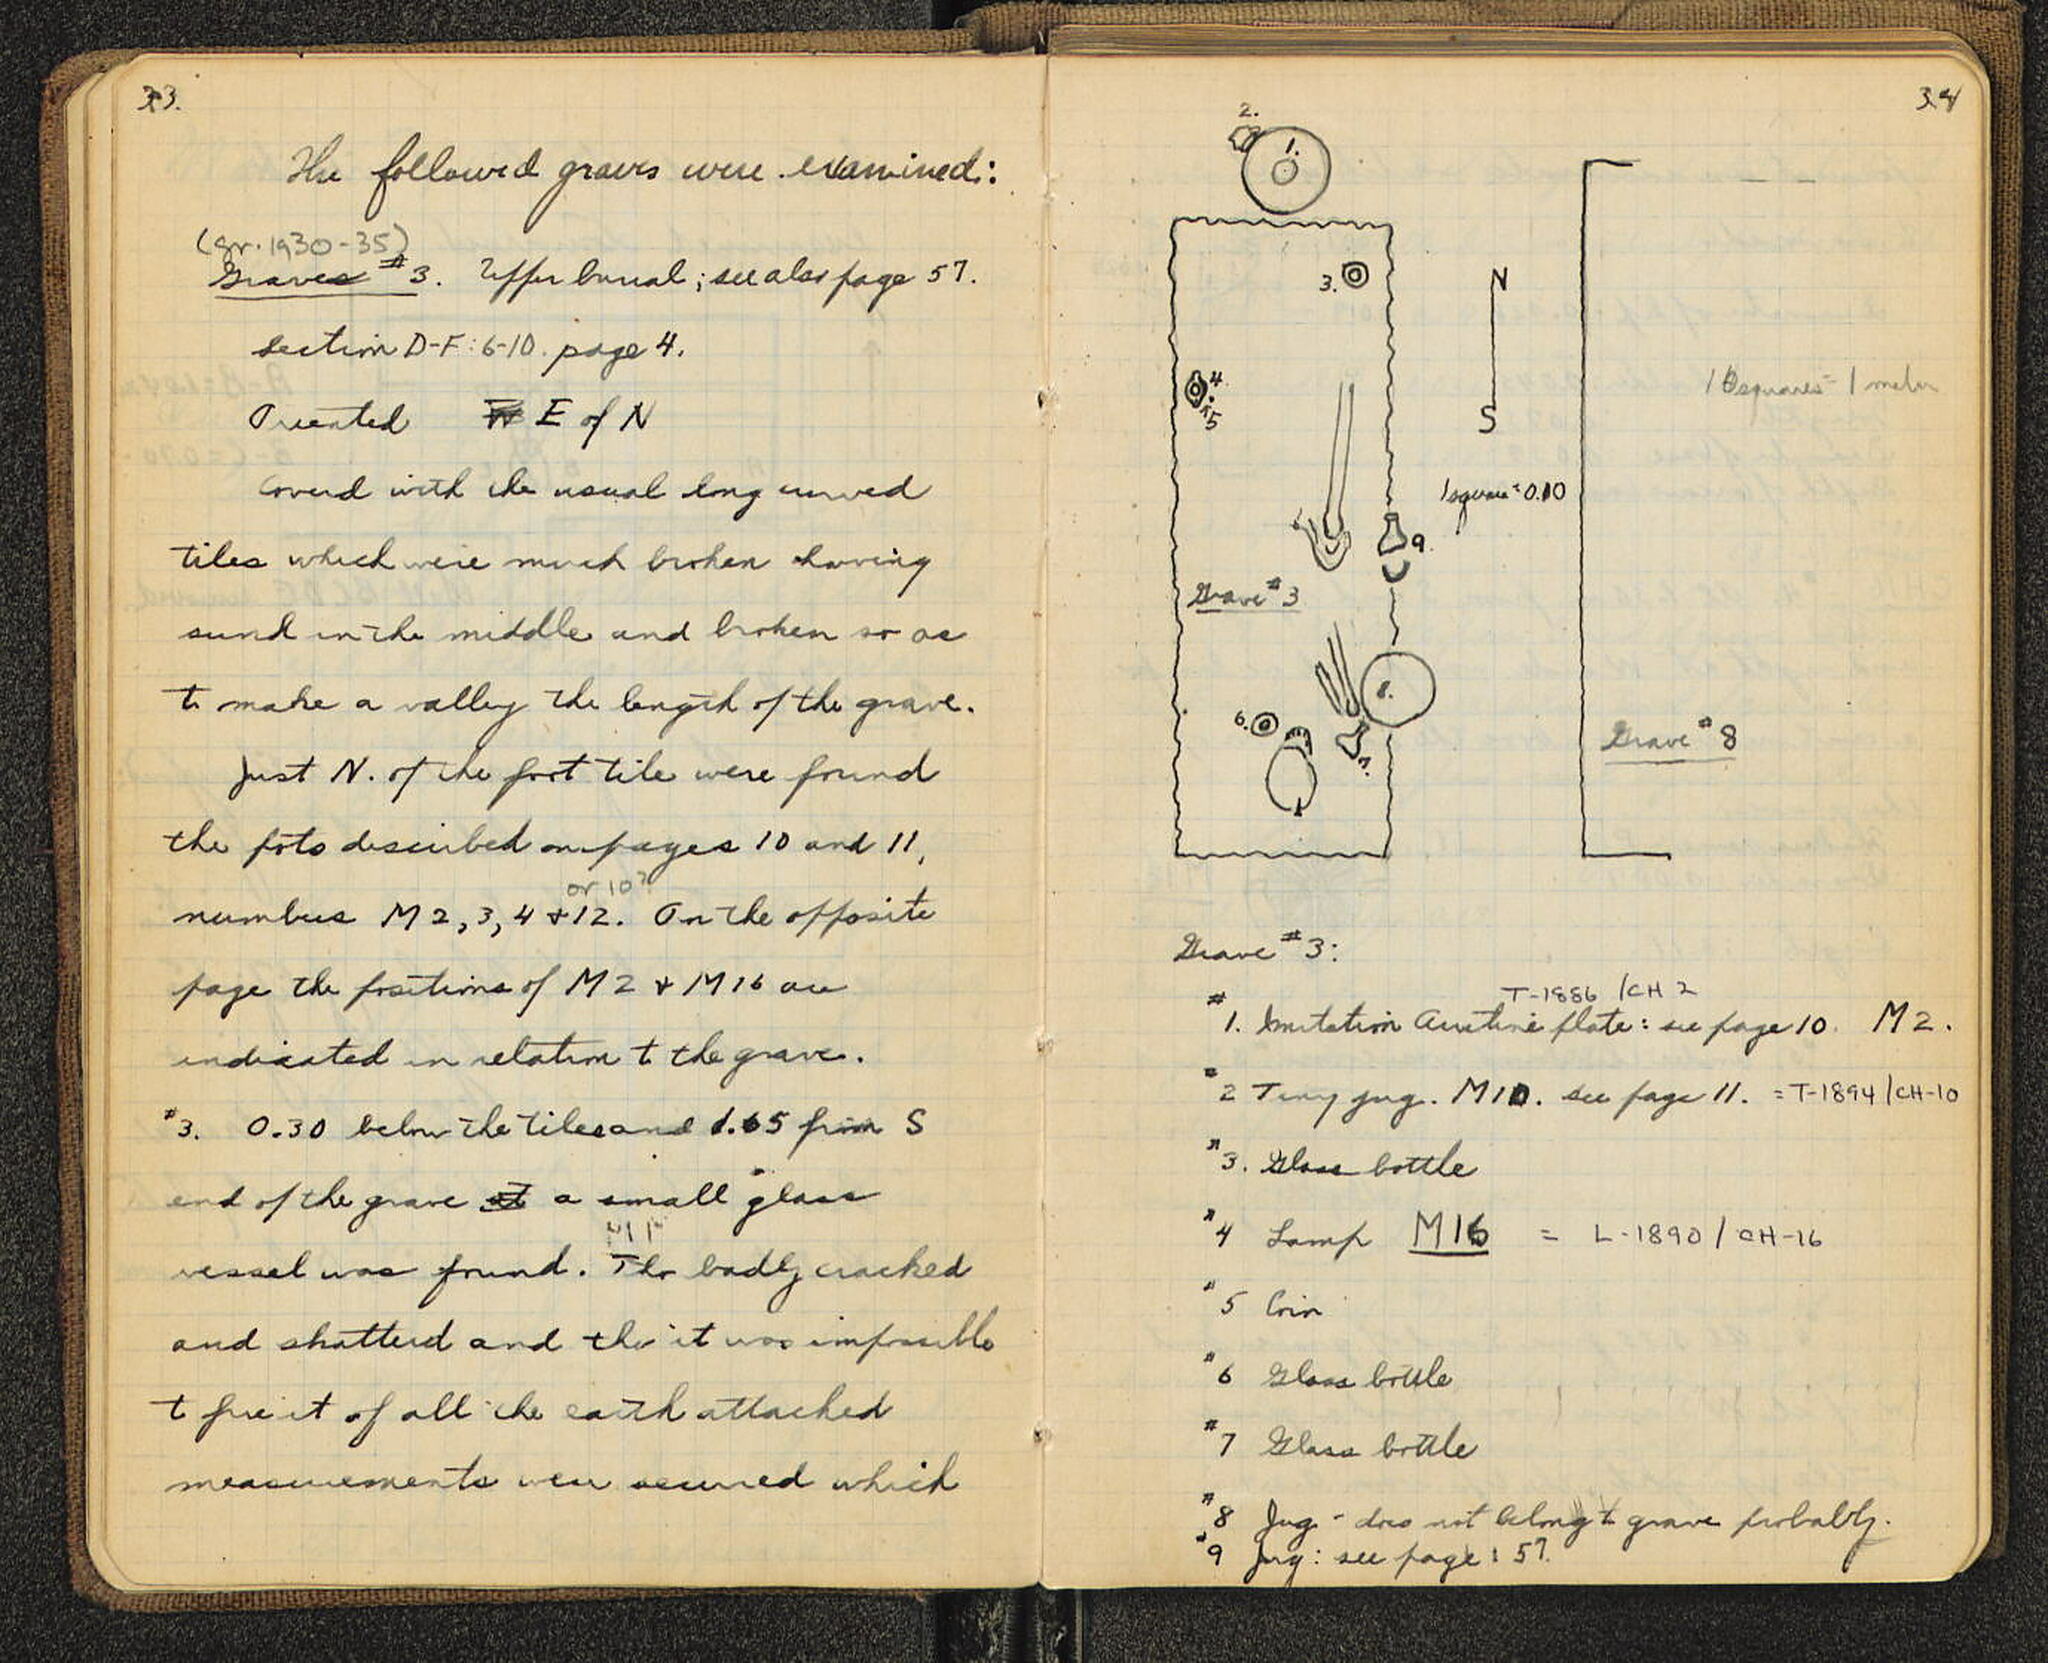 33.
The followed graves were examined:
(gr. 1930-35)
Graves #3. Upper burial; see also page 57.
section D-F: 6-10. page 4.
Oriented E of N
Covered with the usual long curved
tiles which were much broken having
sund in the middle and broken so as
to make a valley the length of the grave.
Just N. of the foot tile were found
the pots described on pages 10 and 11,
or 10?
numbers M 2, 3, 4 + 12. On the opposite
page the positions of M 2 + M 16 are
indicated in relation to the grave.
#3. 0.30 below the tiles and 1.65 from S
end of the grave a small glass
vessel was found. Tho badly cracked
and shattered and tho it was impossible
to free it of all the earth attached
measurements were secured which
34
2.
1.
3.
N
4.
5
1 square = 0.10
S
10 squares = 1 meter
9.
Grave #3
8.
6.
7.
Grave #8
Grave #3:
T-1886 / CH 2
#1. Imitation Arretine plate: see page 10. M 2.
#2 Tiny jug. M10. see page 11. = T-1894 / CH-10
#3. Glass bottle
#4 Lamp M16 = L-1890 / CH-16
#5 Coin
#6 Glass bottle
#7 Glass bottle
#8 Jug - does not belong to grave probably.
#9 Jug: see page: 57.